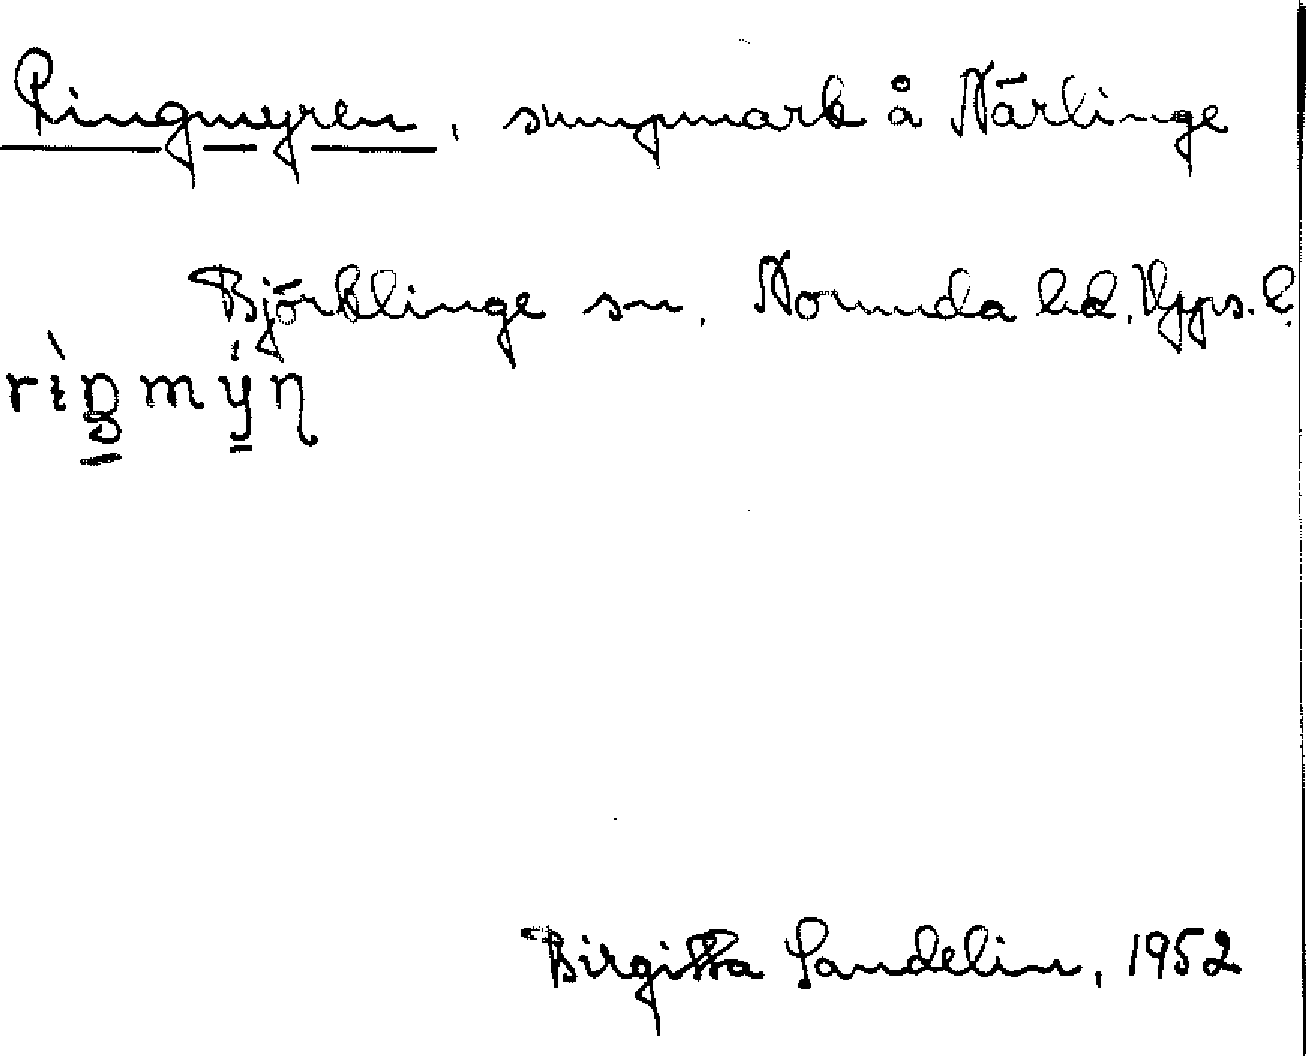 Ringmyren, sumpmark å Närlinge
Björklinge sn, Norunda hd, Upps. l.
rìŋmýɳ
Birgitta Sandelin, 1952